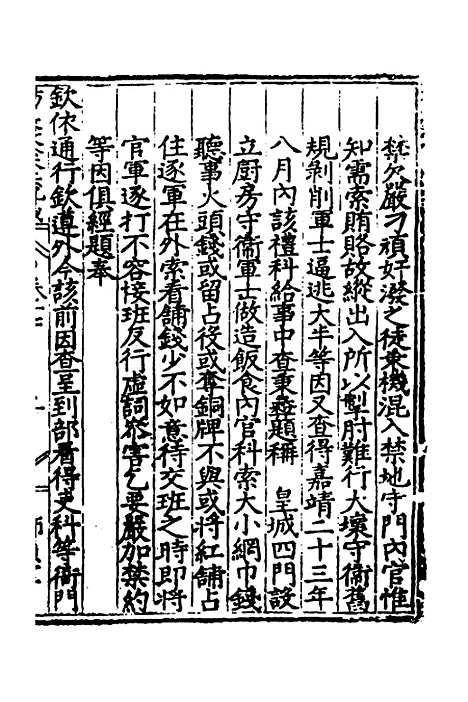 禁欠嚴刁頑奸潑之徒乗機混入禁地守門內官惟
知需索賄賂故縱出入所以掣肘難行大壞守衞舊
規剝削軍士逼逃大半等因又查得嘉靖二十三年
八月內該禮科給事中查秉彝題稱 皇城四門設
立厨房守衞軍士做造飯食內官科索大小網巾錢
聽事火頭錢或留占役或奪銅牌不與或將紅舖占
住逐軍在外索看舖錢少不如意待交班之時即將
官軍逐打不容接班反行虛詞叅害乞要嚴加禁約
等因俱經題奉
欽依通行欽遵外今該前因查呈到部看得吏科等衙門